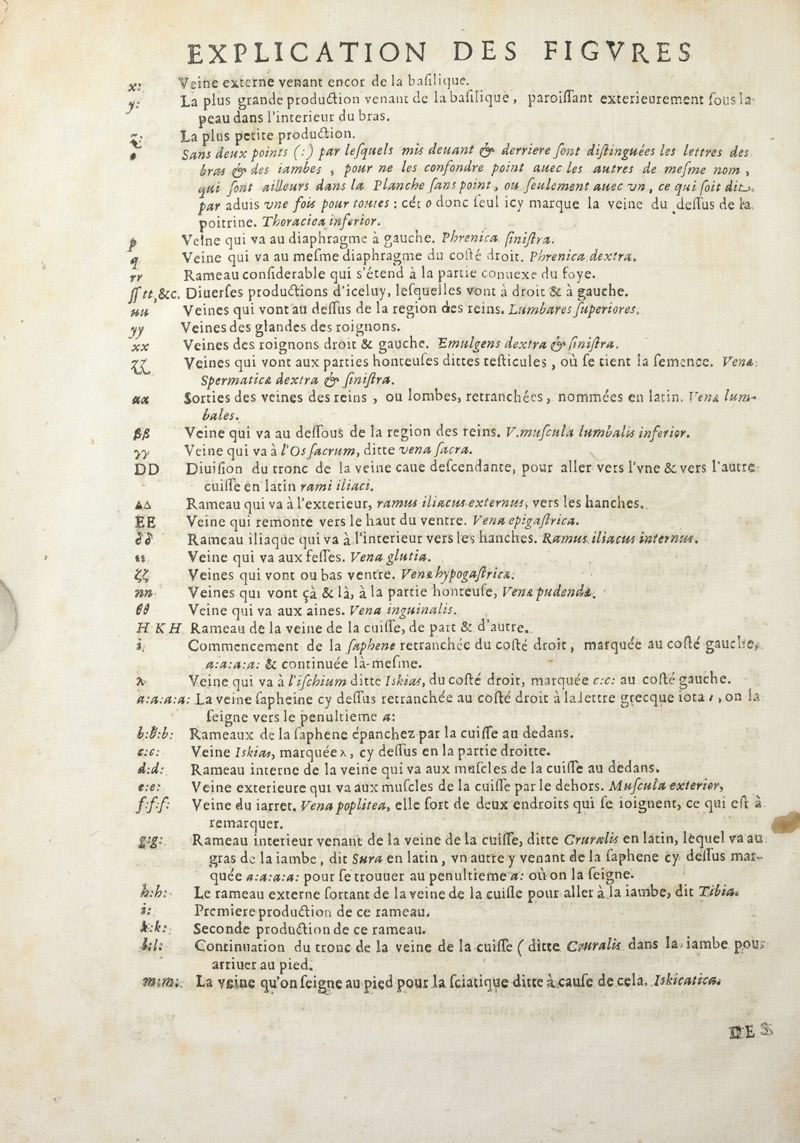 EXPLICATION DES FIGVRES
x: Veine externe venant encor de la basilique.
y: La plus grande production venant de la basilique, paroissant exterieurement sous la
peau dans l'interieur du bras.
z: La plus petite production.
Sans deux points (:) par lesquels mis deuant & derriere sont distinguées les lettres des
bras & des iambes, pour ne les confondre point auec les autres de mesme nom,
qui sont ailleurs dans la Planche sans point, ou seulement auec vn, ce qui soit dit
par aduis vne fois pour toutes : cét o donc seul icy marque la veine du dessus de la
poitrine. Thoracica inferior.
p Veine qui va au diaphragme à gauche. Phrenica sinistra.
q Veine qui va au mesme diaphragme du costé droit. Phrenica dextra.
rr Rameau considerable qui s'étend à la partie conuexe du foye.
ss tt,&c. Diuerses productions d'iceluy, lesquelles vont à droit & à gauche.
uu Veines qui vont au dessus de la region des reins. Lumbares superiores.
yy Veines des glandes des roignons.
xx Veines des roignons droit & gauche. Emulgens dextra & sinistra.
zz Veines qui vont aux parties honteuses dittes testicules, où se tient la semence. Venæ
Spermaticæ dextra & sinistra.
αα Sorties des veines des reins, ou lombes, retranchées, nommées en latin. Venæ lum-
bales.
ββ Veine qui va au dessous de la region des reins. V.muscula lumbalis inferior.
γγ Veine qui va à l'Os sacrum, ditte vena sacra.
DD Diuision du tronc de la veine caue descendante, pour aller vers l'vne & vers l'autre
cuisse en latin rami iliaci.
▲Δ Rameau qui va à l'exterieur, ramus iliacus externus, vers les hanches.
EE Veine qui remonte vers le haut du ventre. Vena epigastrica.
δδ Rameau iliaque qui va à l'interieur vers les hanches. Ramus iliacus internus.
εε Veine qui va aux fesses. Vena glutia.
ζζ Veines qui vont ou bas ventre. Venæ hypogastricæ.
nn Veines qui vont çà & là, à la partie honteuse, Venæ pudendæ.
θθ Veine qui va aux aines. Vena inguinalis.
H K H Rameau de la veine de la cuisse, de part & d'autre.
i, Commencement de la saphene retranchée du costé droit, marquée au costé gauche,
a:a:a:a: & continuée là-mesme.
λ Veine qui va à l'ischium ditte Iskias, du costé droit, marquée c:c: au costé gauche.
a:a:a:a: La veine sapheine cy dessus retranchée au costé droit à la lettre grecque iota ι, on la
seigne vers le penultieme a:
b:b:b: Rameaux de la saphene épanchez par la cuisse au dedans.
c:c: Veine Iskias, marquée λ, cy dessus en la partie droitte.
d:d: Rameau interne de la veine qui va aux muscles de la cuisse au dedans.
e:e: Veine exterieure qui va aux muscles de la cuisse par le dehors. Muscula exterior,
f:f:f: Veine du iarret. Vena poplitea, elle sort de deux endroits qui se ioignent, ce qui est à
remarquer.
g:g: Rameau interieur venant de la veine de la cuisse, ditte Cruralis en latin, lequel va au
gras de la iambe, dit Sura en latin, vn autre y venant de la saphene cy dessus mar-
quée a:a:a:a: pour se trouuer au penultieme a: où on la seigne.
h:h: Le rameau externe sortant de la veine de la cuisse pour aller à la iambe, dit Tibia.
i: Premiere production de ce rameau.
k:k: Seconde production de ce rameau.
l:l: Continuation du tronc de la veine de la cuisse (ditte Cruralis dans la iambe pour
arriuer au pied.
m:m: La veine qu'on seigne au pied pour la sciatique ditte à cause de cela, Iskicatica.
DES